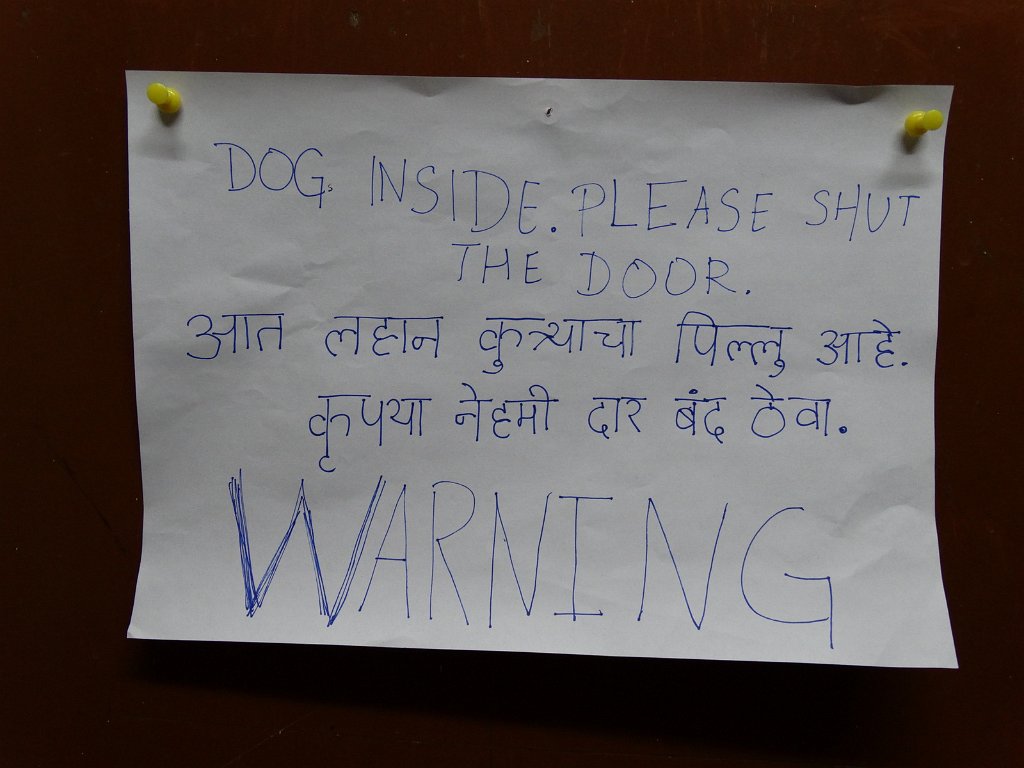 DOG. INSIDE. PLEASE SHUT
THE DOOR.
आत लहान कुत्र्याचा पिल्लु आहे.
कृपया नेहमी दार बंद ठेवा.
WARNING